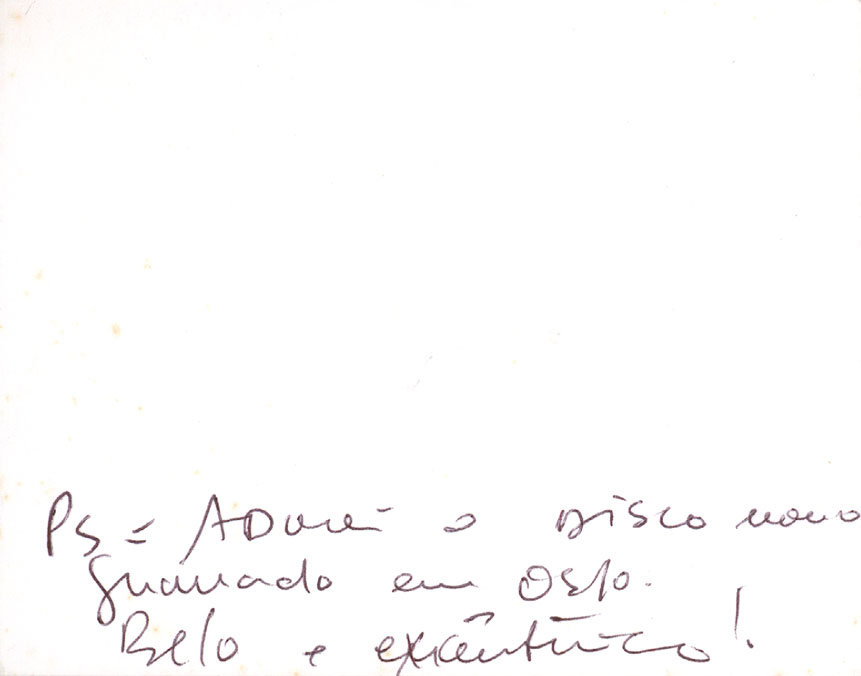 Ps = ADorei o Disco novo
gravado em Oslo.
Belo e exêntrico!